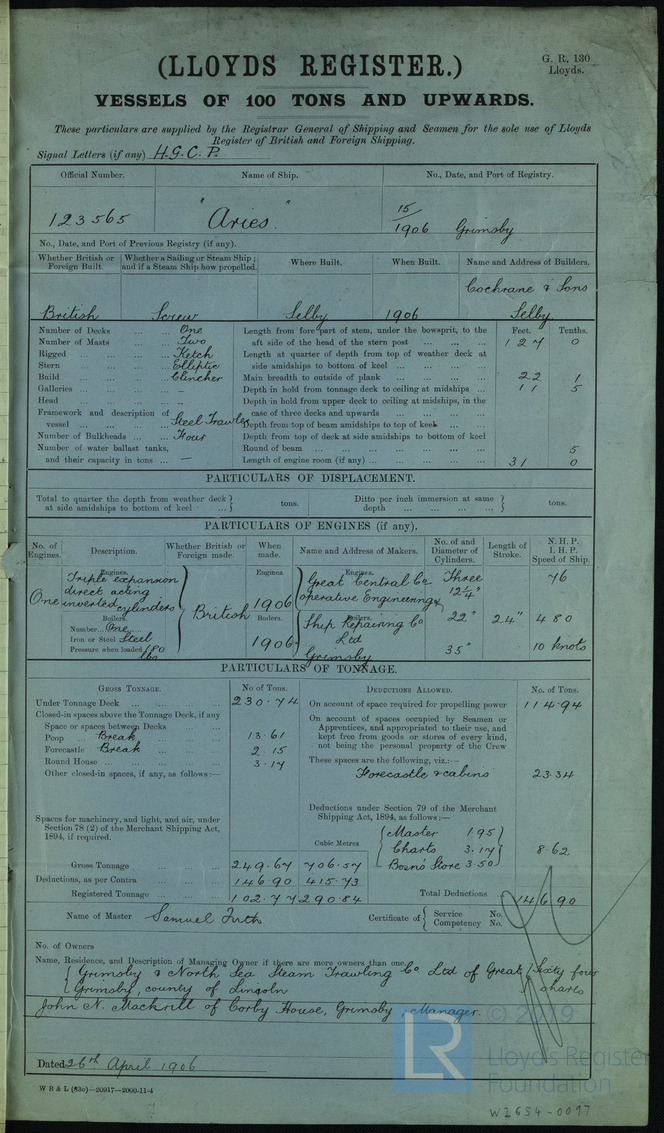 (LLOYDS REGISTER.)
G. R. 130
Lloyds.
VESSELS OF 100 TONS AND UPWARDS.
These particulars are supplied by the Registrar General of Shipping and Seamen for the sole use of Lloyds
Register of British and Foreign Shipping.
Signal Letters (if any) H.G.C.P.
Official Number. Name of Ship. No., Date, and Port of Registry.
123565 "Aries." 15/1906 Grimsby
No., Date, and Port of Previous Registry (if any).
Whether British or Foreign Built. Whether a Sailing or Steam Ship; and if a Steam Ship how propelled. Where Built. When Built. Name and Address of Builders.
British Screw Selby 1906 Cochrane & Sons Selby.
Number of Decks One Length from fore part of stem, under the bowsprit, to the Feet. Tenths.
Number of Masts Two aft side of the head of the stern post 127 0
Rigged Ketch Length at quarter of depth from top of weather deck at
Stern Elliptic side amidships to bottom of keel
Build Clincher Main breadth to outside of plank 22 1
Galleries — Depth in hold from tonnage deck to ceiling at midships 11 5
Head — Depth in hold from upper deck to ceiling at midships, in the
Framework and description of case of three decks and upwards
vessel Steel Trawler Depth from top of beam amidships to top of keel
Number of Bulkheads Four Depth from top of deck at side amidships to bottom of keel
Number of water ballast tanks, Round of beam 5
and their capacity in tons — Length of engine room (if any) 31 0
PARTICULARS OF DISPLACEMENT.
Total to quarter the depth from weather deck at side amidships to bottom of keel } tons. Ditto per inch immersion at same depth } tons.
PARTICULARS OF ENGINES (if any).
No. of Engines. Description. Whether British or Foreign made. When made. Name and Address of Makers. No. of and Diameter of Cylinders. Length of Stroke. N. H. P. I. H. P. Speed of Ship.
Engines. Engines. Engines.
One Triple expansion direct acting inverted cylinders British 1906 Great Central Co operative Engineering & Three 12¼" 76
Boilers. Boilers. Boilers.
Number One Ship Repairing Co 22" 24" 480
Iron or Steel Steel 1906 Ltd
Pressure when loaded 180 lbs Grimsby 35" 10 knots
PARTICULARS OF TONNAGE.
GROSS TONNAGE. No of Tons. DEDUCTIONS ALLOWED. No. of Tons.
Under Tonnage Deck 230.74 On account of space required for propelling power 114.94
Closed-in spaces above the Tonnage Deck, if any On account of spaces occupied by Seamen or
Space or spaces between Decks Apprentices, and appropriated to their use, and
Poop Break 13.61 kept free from goods or stores of every kind,
Forecastle Break 2.15 not being the personal property of the Crew
Round House 3.17 These spaces are the following, viz.:—
Other closed-in spaces, if any, as follows:— Forecastle & cabins 23.34
Deductions under Section 79 of the Merchant
Spaces for machinery, and light, and air, under Shipping Act, 1894, as follows:—
Section 78 (2) of the Merchant Shipping Act, Master 1.95
1894, if required. Cubic Metres. Charts 3.17 8.62
Gross Tonnage 249.67 706.57 Bosn's Store 3.50
Deductions, as per Contra 146.90 415.73
Registered Tonnage 102.77 290.84 Total Deductions 146.90
Name of Master Samuel Firth Certificate of { Service No. Competency No.
No. of Owners
Name, Residence, and Description of Managing Owner if there are more owners than one
Grimsby & North Sea Steam Trawling Co Ltd of Great Sixty four
Grimsby, county of Lincoln shares
John N. Mackrill of Corby House, Grimsby, Manager.
Dated 26th April 1906
W B & L (83o)—20917—2000-11-4
LR
© 2019
Lloyd's Register
Foundation
W1654-0097